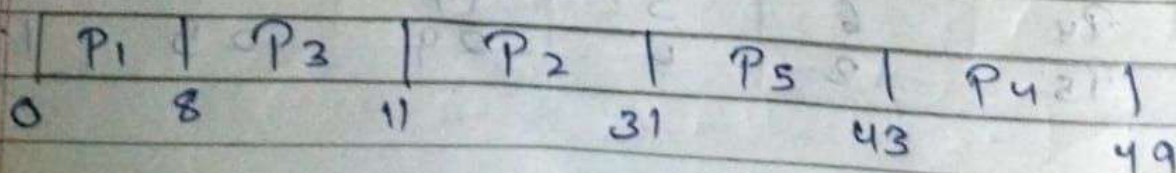 P1 | P3 | P2 | P5 | P4 |
0 8 11 31 43 49